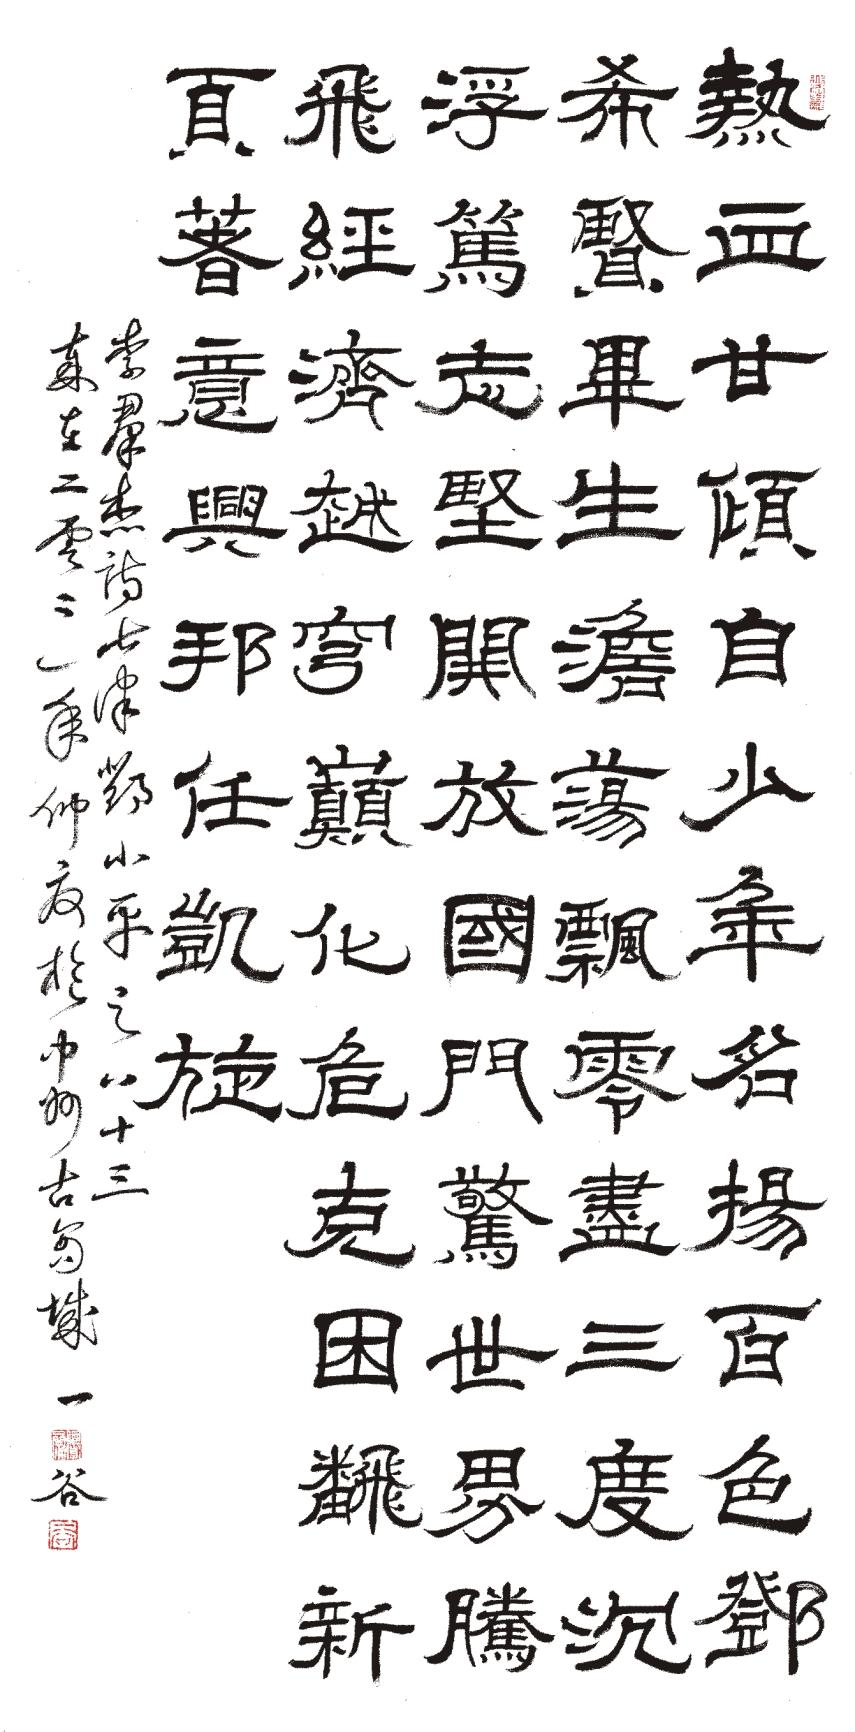 熱血甘傾自少年名揚百色鄧
希賢畢生澹蕩飄零盡三度沉
浮篤志堅開放國門驚世界騰
飛經濟越穹巔化危克困飜新
頁著意興邦任凱旋
李羣杰詩七律鄧小平之八十三
二零二一年仲夏於中州古商城 一谷